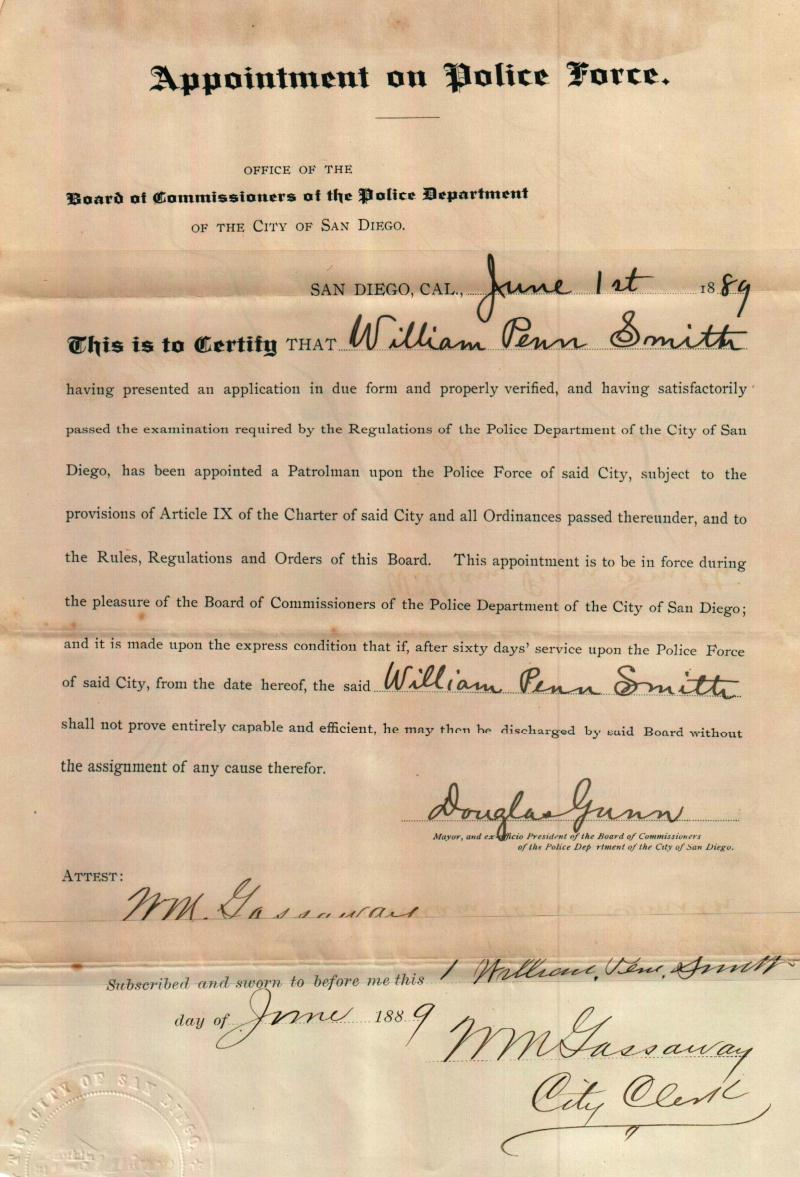 Appointment on Police Force.
OFFICE OF THE
Board of Commissioners of the Police Department
OF THE CITY OF SAN DIEGO.
SAN DIEGO, CAL., June 1st 1889
This is to Certify THAT William Penn Smith
having presented an application in due form and properly verified, and having satisfactorily
passed the examination required by the Regulations of the Police Department of the City of San
Diego, has been appointed a Patrolman upon the Police Force of said City, subject to the
provisions of Article IX of the Charter of said City and all Ordinances passed thereunder, and to
the Rules, Regulations and Orders of this Board. This appointment is to be in force during
the pleasure of the Board of Commissioners of the Police Department of the City of San Diego;
and it is made upon the express condition that if, after sixty days' service upon the Police Force
of said City, from the date hereof, the said William Penn Smith
shall not prove entirely capable and efficient, he may then be discharged by said Board without
the assignment of any cause therefor.
Douglas Gunn
Mayor, and ex-officio President of the Board of Commissioners
of the Police Dep rtment of the City of San Diego.
ATTEST:
WM. Gassaway
Subscribed and sworn to before me this 1 William, Penn, Smith
day of June 1889
WM Gassaway
City Clerk
THE CITY OF SAN DIEGO.